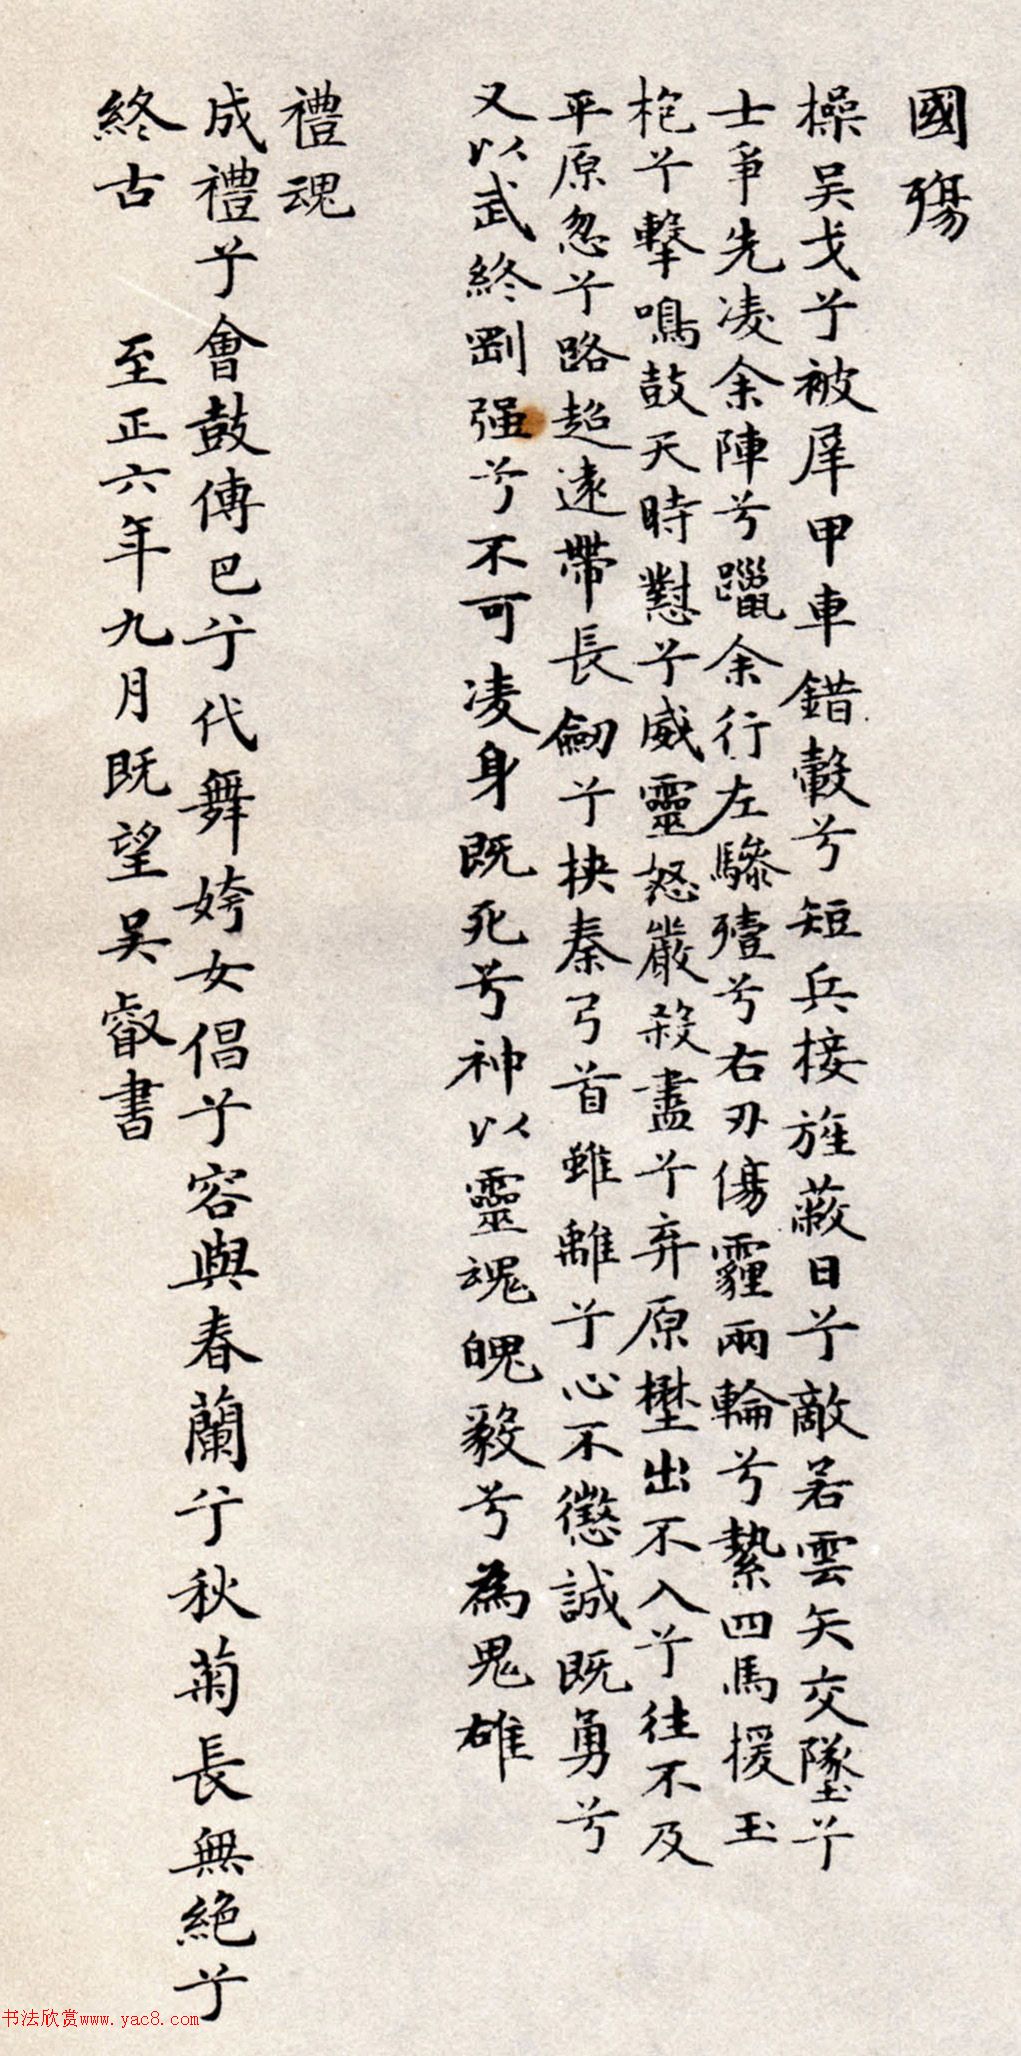 國殤
操吴戈兮被犀甲車錯轂兮短兵接旌蔽日兮敵若雲矢交墜兮
士爭先凌余陣兮躐余行左驂殪兮右刃傷霾兩輪兮縶四馬援玉
枹兮擊鳴鼓天時懟兮威靈怒嚴殺盡兮弃原壄出不入兮往不及
平原忽兮路超遠帶長劒兮挾秦弓首雖離兮心不懲誠既勇兮
又以武終剛强兮不可凌身既死兮神以靈魂魄毅兮為鬼雄
禮魂
成禮兮會鼓傳巴兮代舞姱女倡兮容與春蘭兮秋菊長無絶兮
終古 至正六年九月既望吴叡書
书法欣赏www.yac8.com